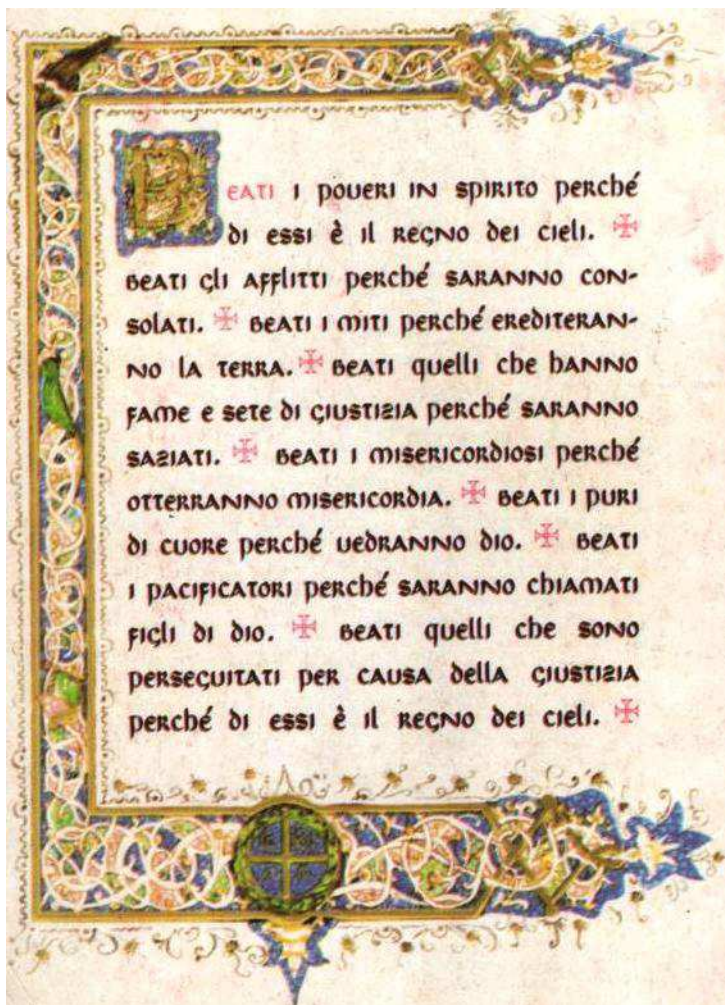 BEATI I POVERI IN SPIRITO PERCHÉ
DI ESSI È IL REGNO DEI CIELI. ✠
BEATI GLI AFFLITTI PERCHÉ SARANNO CON-
SOLATI. ✠ BEATI I MITI PERCHÉ EREDITERAN-
NO LA TERRA. ✠ BEATI QUELLI CHE HANNO
FAME E SETE DI GIUSTIZIA PERCHÉ SARANNO
SAZIATI. ✠ BEATI I MISERICORDIOSI PERCHÉ
OTTERRANNO MISERICORDIA. ✠ BEATI I PURI
DI CUORE PERCHÉ VEDRANNO DIO. ✠ BEATI
I PACIFICATORI PERCHÉ SARANNO CHIAMATI
FIGLI DI DIO. ✠ BEATI QUELLI CHE SONO
PERSEGUITATI PER CAUSA DELLA GIUSTIZIA
PERCHÉ DI ESSI È IL REGNO DEI CIELI. ✠